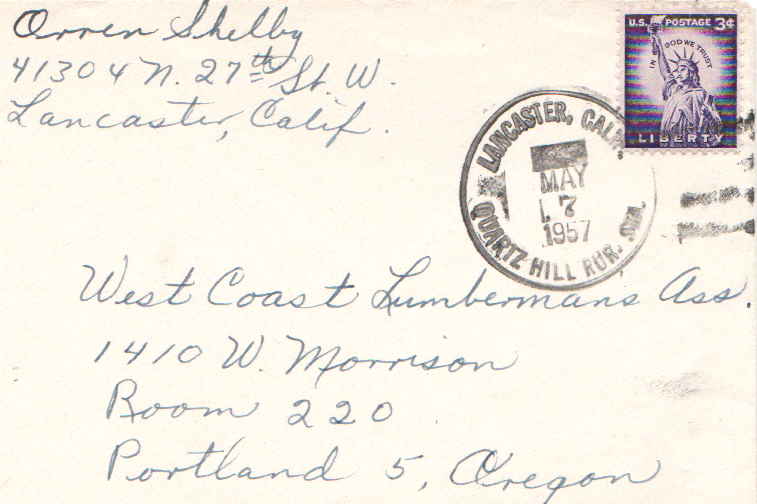 Orren Shelby
41304 N. 27th St. W.
Lancaster, Calif.
U.S. POSTAGE 3¢
IN GOD WE TRUST
LIBERTY
LANCASTER, CALIF.
MAY
7
1957
QUARTZ HILL RUR. STA.
West Coast Lumbermans Ass.
1410 W. Morrison
Room 220
Portland 5, Oregon